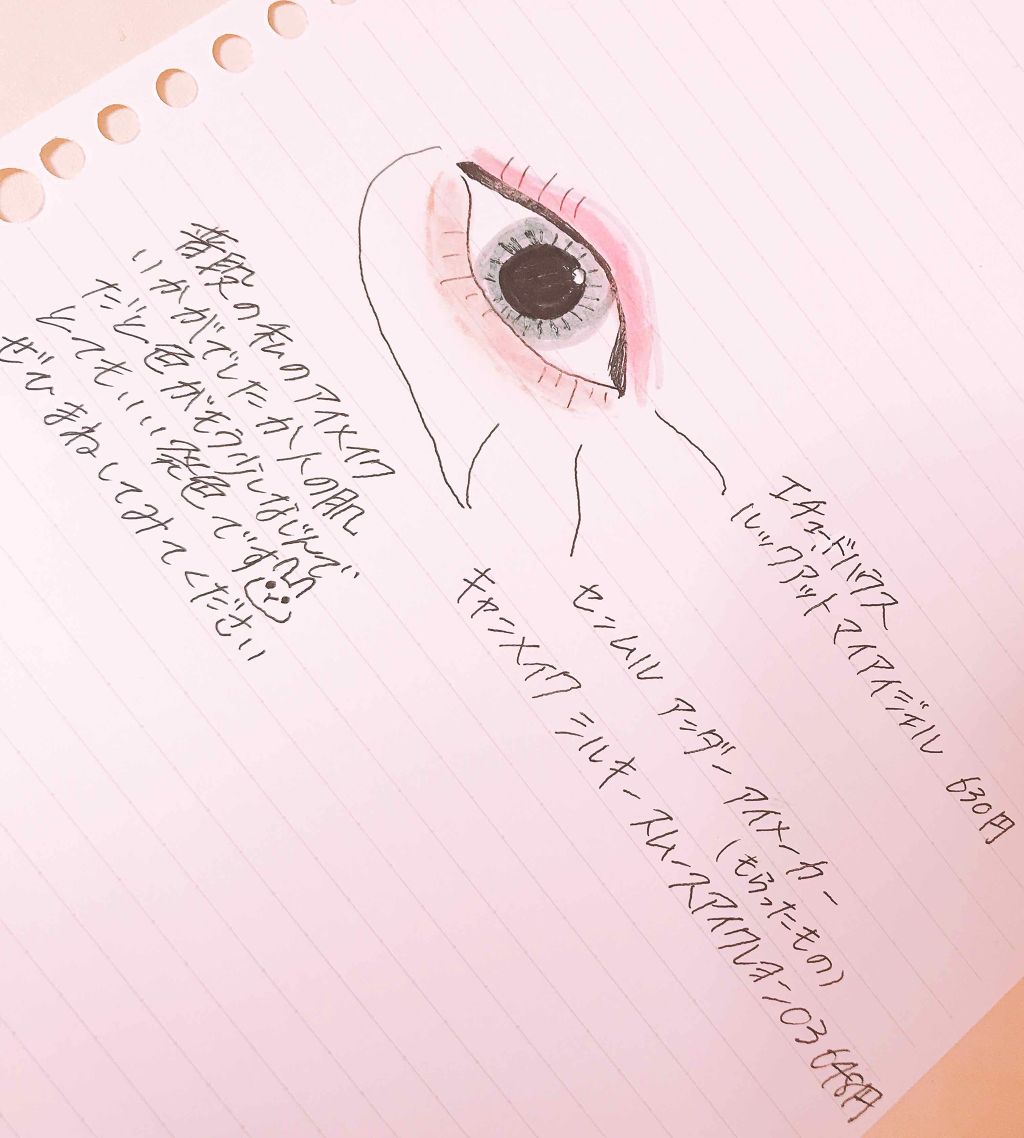 エチュードハウス
ルックアットマイアイジェル 630円
センムル アンダー アイメーカー
(もらったもの)
キャンメイク シルキースムースアイクレヨン03 648円
普段の私のアイメイク
いかがでしたか人の肌
だと色がもう少しなじんで
とてもいい発色です
ぜひまねしてみてください